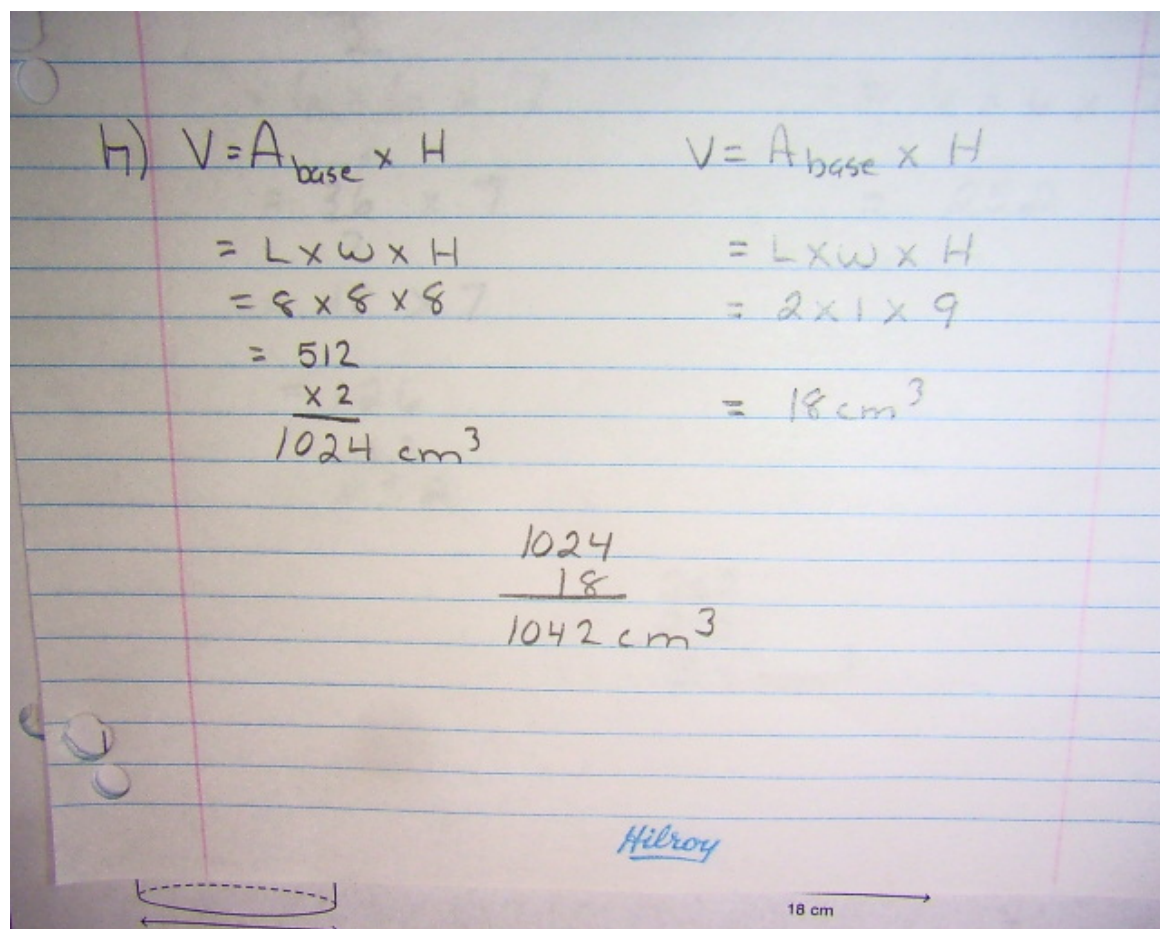 h) V = A base x H
= L x w x H
= 8 x 8 x 8
= 512
x 2
1024 cm³
V = A base x H
= L x w x H
= 2 x 1 x 9
= 18 cm³
1024
18
1042 cm³
Hilroy
18 cm